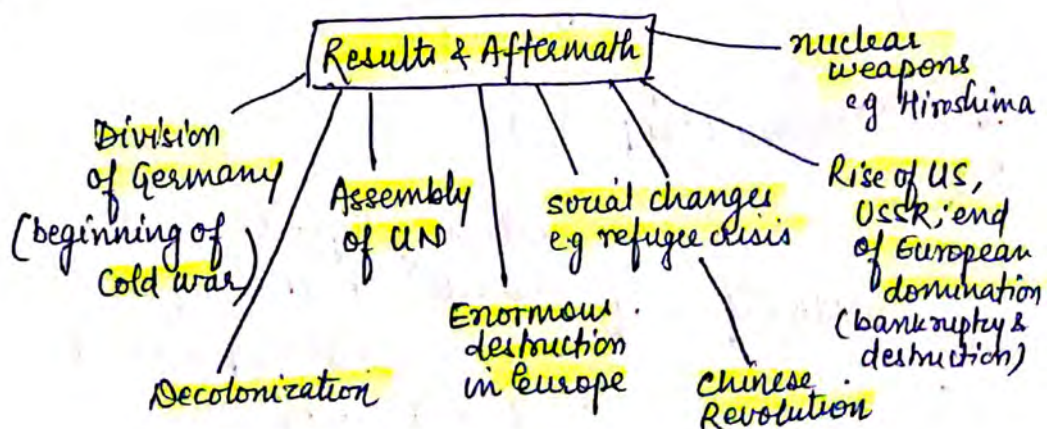 Results & Aftermath
nuclear
weapons
eg Hiroshima
Division
of Germany
(beginning of
Cold war)
Assembly
of UN
social changes
eg refugee crisis
Rise of US,
USSR; end
of European
domination
(bankruptcy &
destruction)
Decolonization
Enormous
destruction
in Europe
Chinese
Revolution